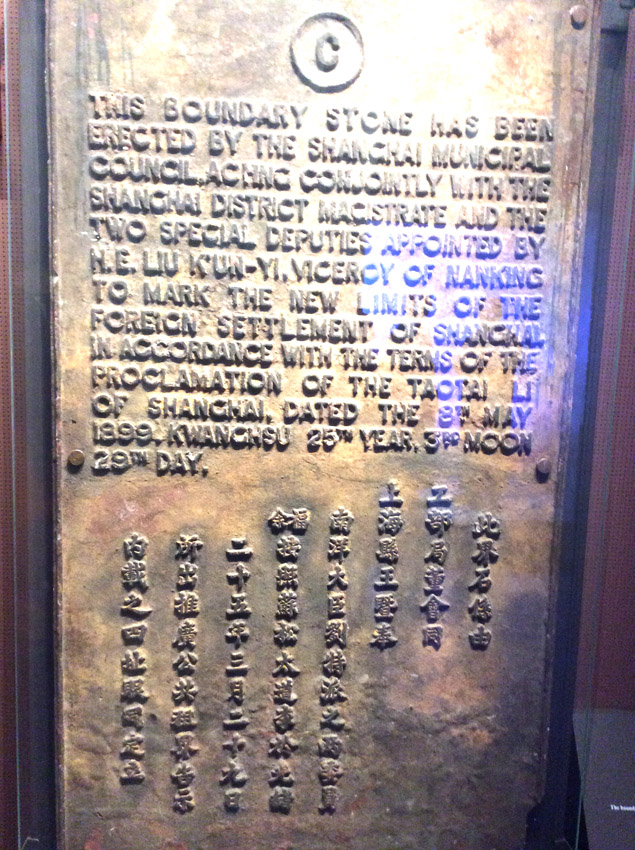 C
THIS BOUNDARY STONE HAS BEEN
ERECTED BY THE SHANGHAI MUNICIPAL
COUNCIL, ACTING CONJOINTLY WITH THE
SHANGHAI DISTRICT MAGISTRATE AND THE
TWO SPECIAL DEPUTIES APPOINTED BY
H.E. LIU K'UN-YI, VICEROY OF NANKING
TO MARK THE NEW LIMITS OF THE
FOREIGN SETTLEMENT OF SHANGHAI,
IN ACCORDANCE WITH THE TERMS OF THE
PROCLAMATION OF THE TAOTAI LI
OF SHANGHAI, DATED THE 8TH MAY
1899. KWANGHSU 25TH YEAR, 3RD MOON
29TH DAY.
此界石係由
工部局董會同
上海縣王暨奉
南洋大臣劉特派之兩委員
福余按照蘇松太道李於光緒
二十五年三月二十九日
所出推廣公共租界告示
內載之四址眼同定立
The bound